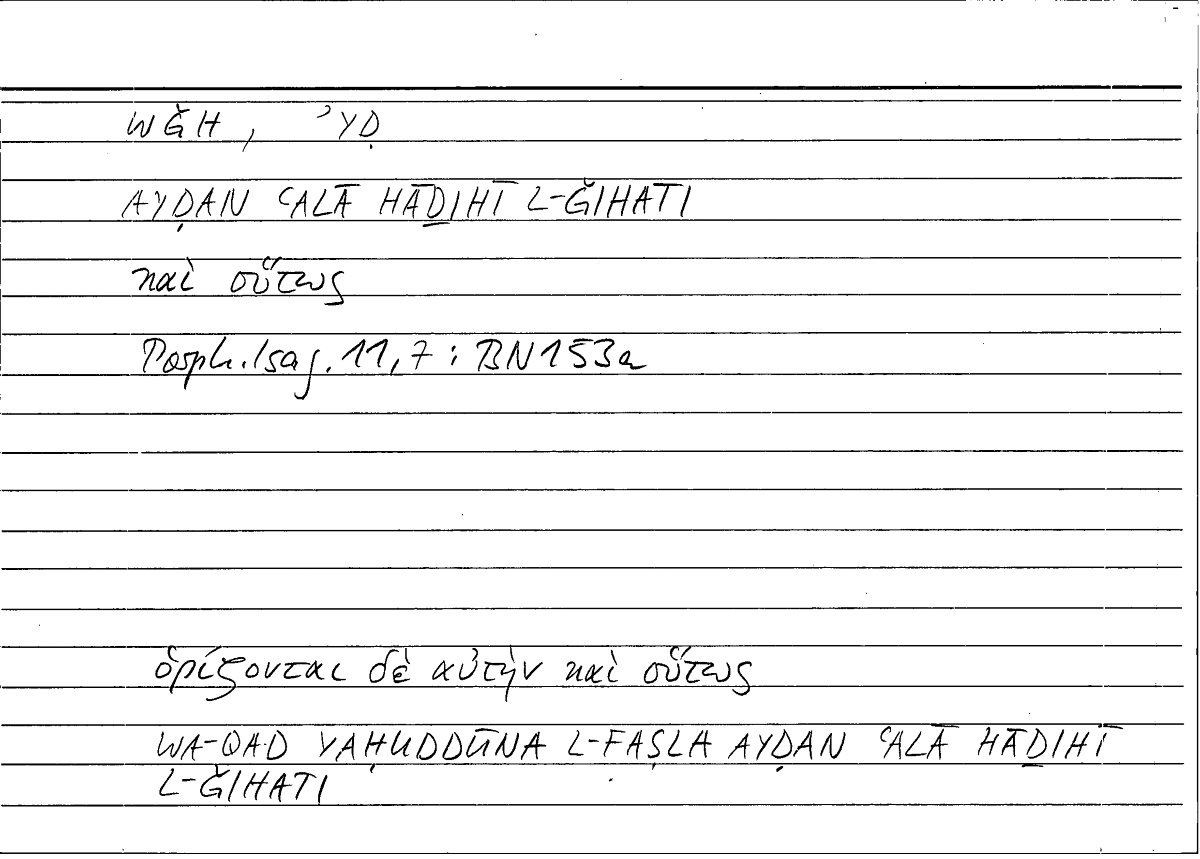 WǦH, ʾYḌ
AYḌAN ʿALĀ HĀḎIHĪ L-ǦIHATI
καὶ οὕτως
Porph. Isag. 11,7 : BN 153a
ὁρίζονται δὲ αὐτὴν καὶ οὕτως
WA-QAD YAḤUDDŪNA L-FAṢLA AYḌAN ʿALĀ HĀḎIHĪ
L-ǦIHATI